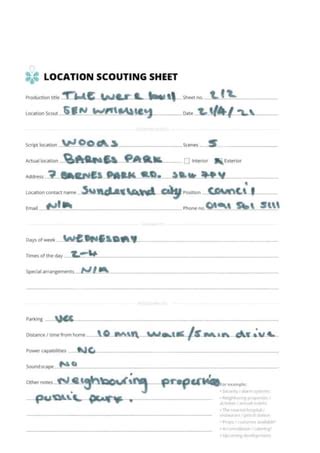 LOCATION SCOUTING SHEET
Production title THE Were bull Sheet no. 2/2
Location Scout BEN Walmsley Date 21/4/21
Script location WOODS Scenes 5
Actual location BARNES PARK Interior Exterior
Address 7 BARNES PARK RD.
Location contact name Sunderland city Position council
Email N/A Phone no. 0191 561 5111
Days of week WEDNESDAY
Times of the day 2-4
Special arrangements N/A
Parking yes
Distance / time from home 10 min walk / 5 min drive
Power capabilities NO
Soundscape NO
Other notes Neighbouring properties
public park.
For example:
• Security / alarm systems
• Neighbouring properties /
activities / annual events
• The nearest hospital /
restaurant / petrol station
• Props / costumes available?
• Accomodation / catering?
• Upcoming developments